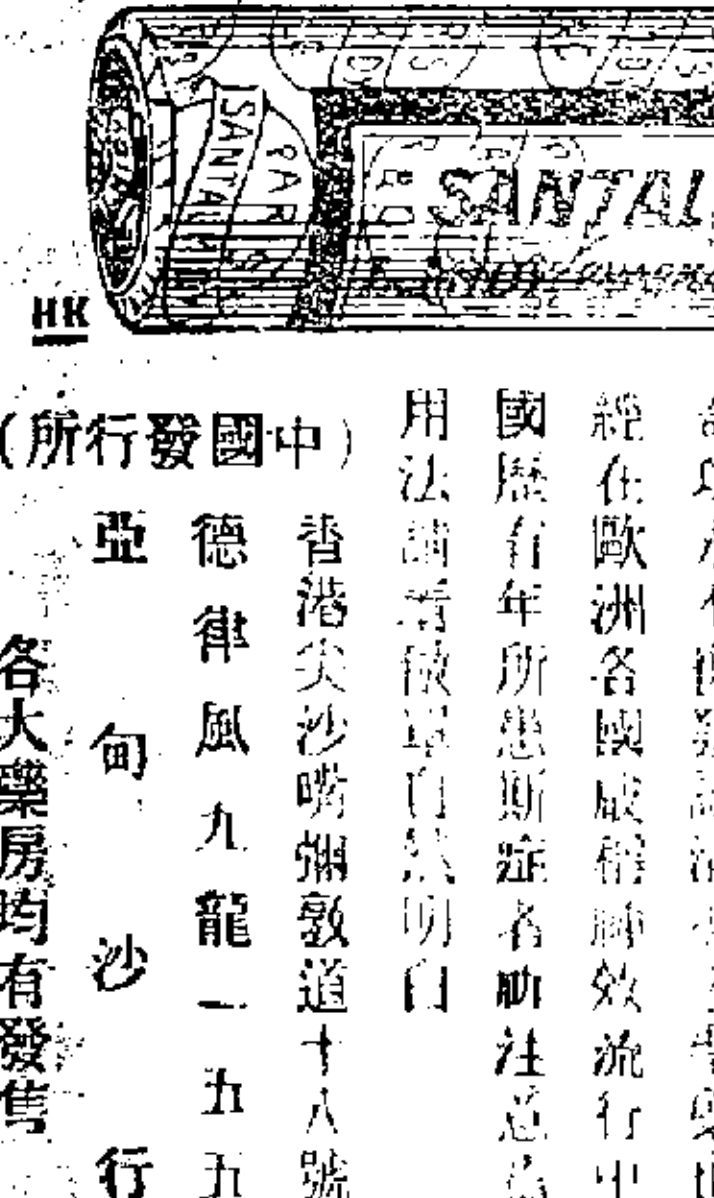 SANTAL
SANTAL
HK
經在歐洲各國咸稱神效流行中
國歷有年所患斯症者盼注意為
用法請看仿單自然明白
(中國發行所)
香港尖沙嘴彌敦道十八號
德律風九龍一五五
亞甸沙行
各大藥房均有發售